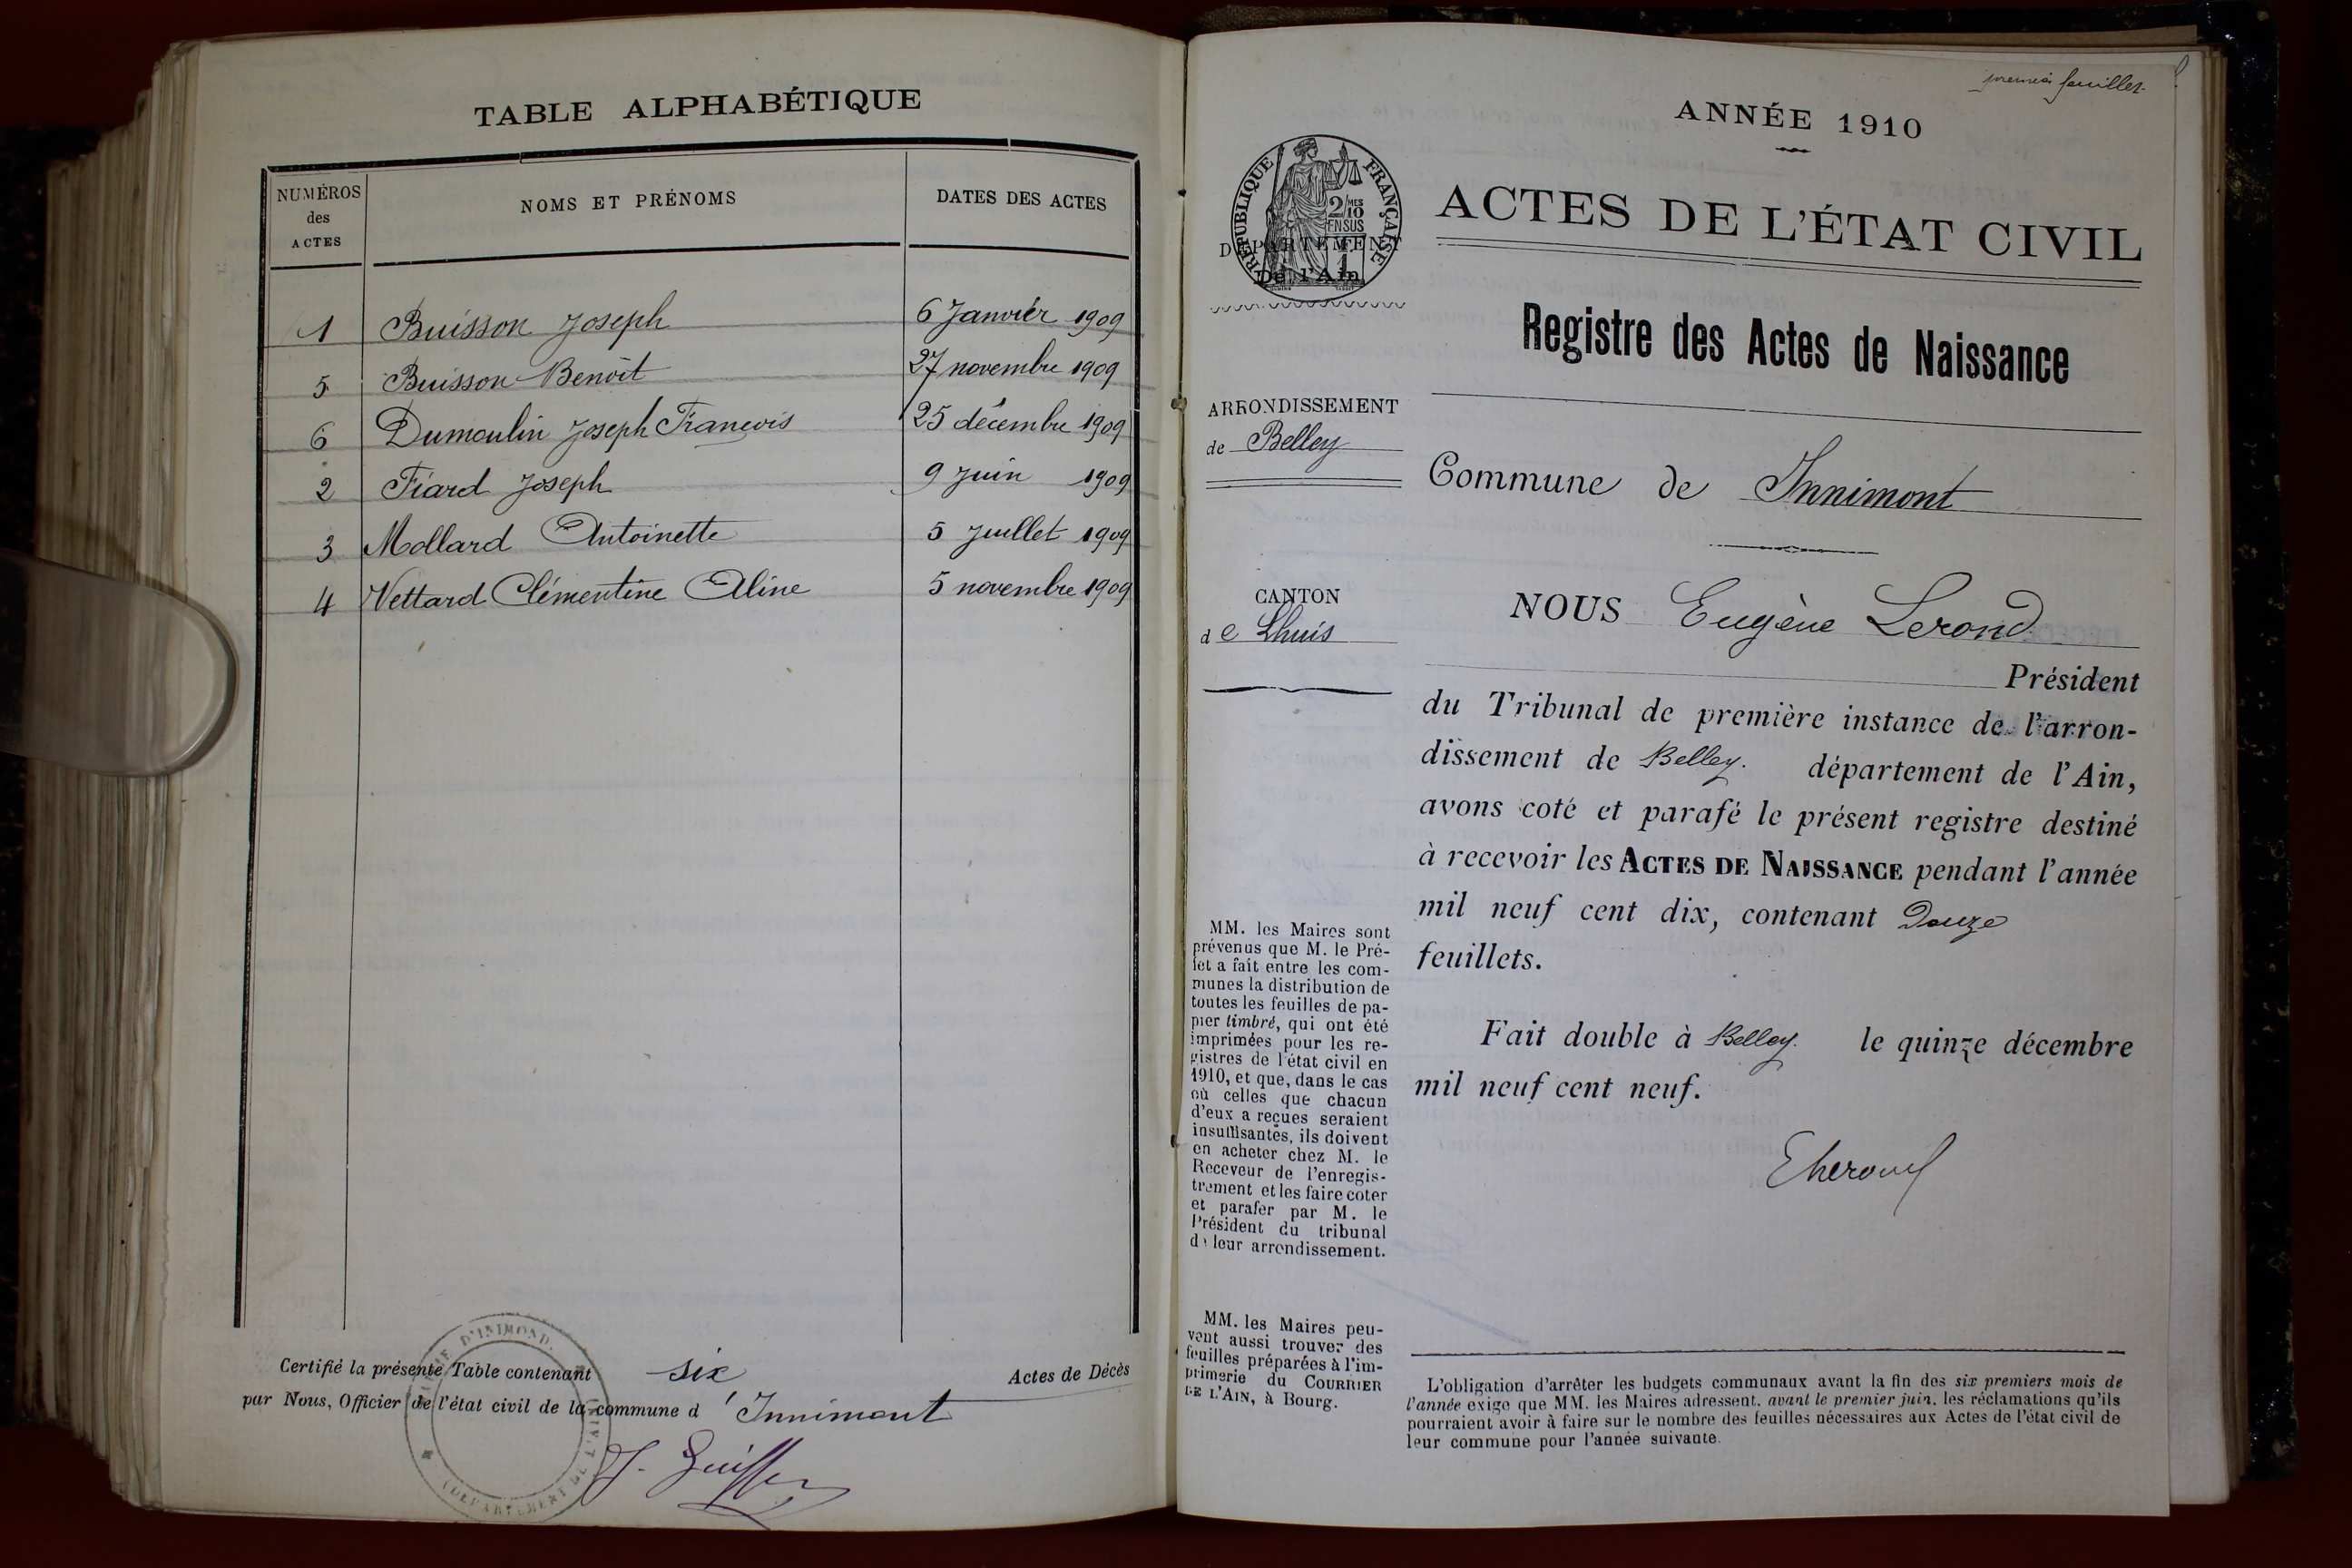 TABLE ALPHABÉTIQUE
NUMÉROS des ACTES NOMS ET PRÉNOMS DATES DES ACTES
1 Buisson Joseph 6 Janvier 1909
5 Buisson Benoît 27 novembre 1909
6 Dumoulin Joseph François 25 décembre 1909
2 Fiard Joseph 9 Juin 1909
3 Mollard Antoinette 5 Juillet 1909
4 Vettard Clémentine Aline 5 novembre 1909
Certifié la présente Table contenant six Actes de Décès
par Nous, Officier de l'état civil de la commune d'Innimont
premier feuillet
ANNÉE 1910
RÉPUBLIQUE FRANÇAISE
2/10 MES
EN SUS
DÉPARTEMENT
De l'Ain
ACTES DE L'ÉTAT CIVIL
Registre des Actes de Naissance
ARRONDISSEMENT
de Belley
Commune de Innimont
CANTON
de Lhuis
NOUS Eugène Lerond
Président
du Tribunal de première instance de l'arron-
dissement de Belley. département de l'Ain,
avons coté et parafé le présent registre destiné
à recevoir les ACTES DE NAISSANCE pendant l'année
mil neuf cent dix, contenant Douze
feuillets.
Fait double à Belley. le quinze décembre
mil neuf cent neuf.
MM. les Maires sont
prévenus que M. le Pré-
fet a fait entre les com-
munes la distribution de
toutes les feuilles de pa-
pier timbré, qui ont été
imprimées pour les re-
gistres de l'état civil en
1910, et que, dans le cas
où celles que chacun
d'eux a reçues seraient
insuffisantes, ils doivent
en acheter chez M. le
Receveur de l'enregis-
trement et les faire coter
et parafer par M. le
Président du tribunal
de leur arrondissement.
MM. les Maires peu-
vent aussi trouver des
feuilles préparées à l'im-
primerie du COURRIER
DE L'AIN, à Bourg.
L'obligation d'arrêter les budgets communaux avant la fin des six premiers mois de
l'année exige que MM. les Maires adressent, avant le premier juin, les réclamations qu'ils
pourraient avoir à faire sur le nombre des feuilles nécessaires aux Actes de l'état civil de
leur commune pour l'année suivante.